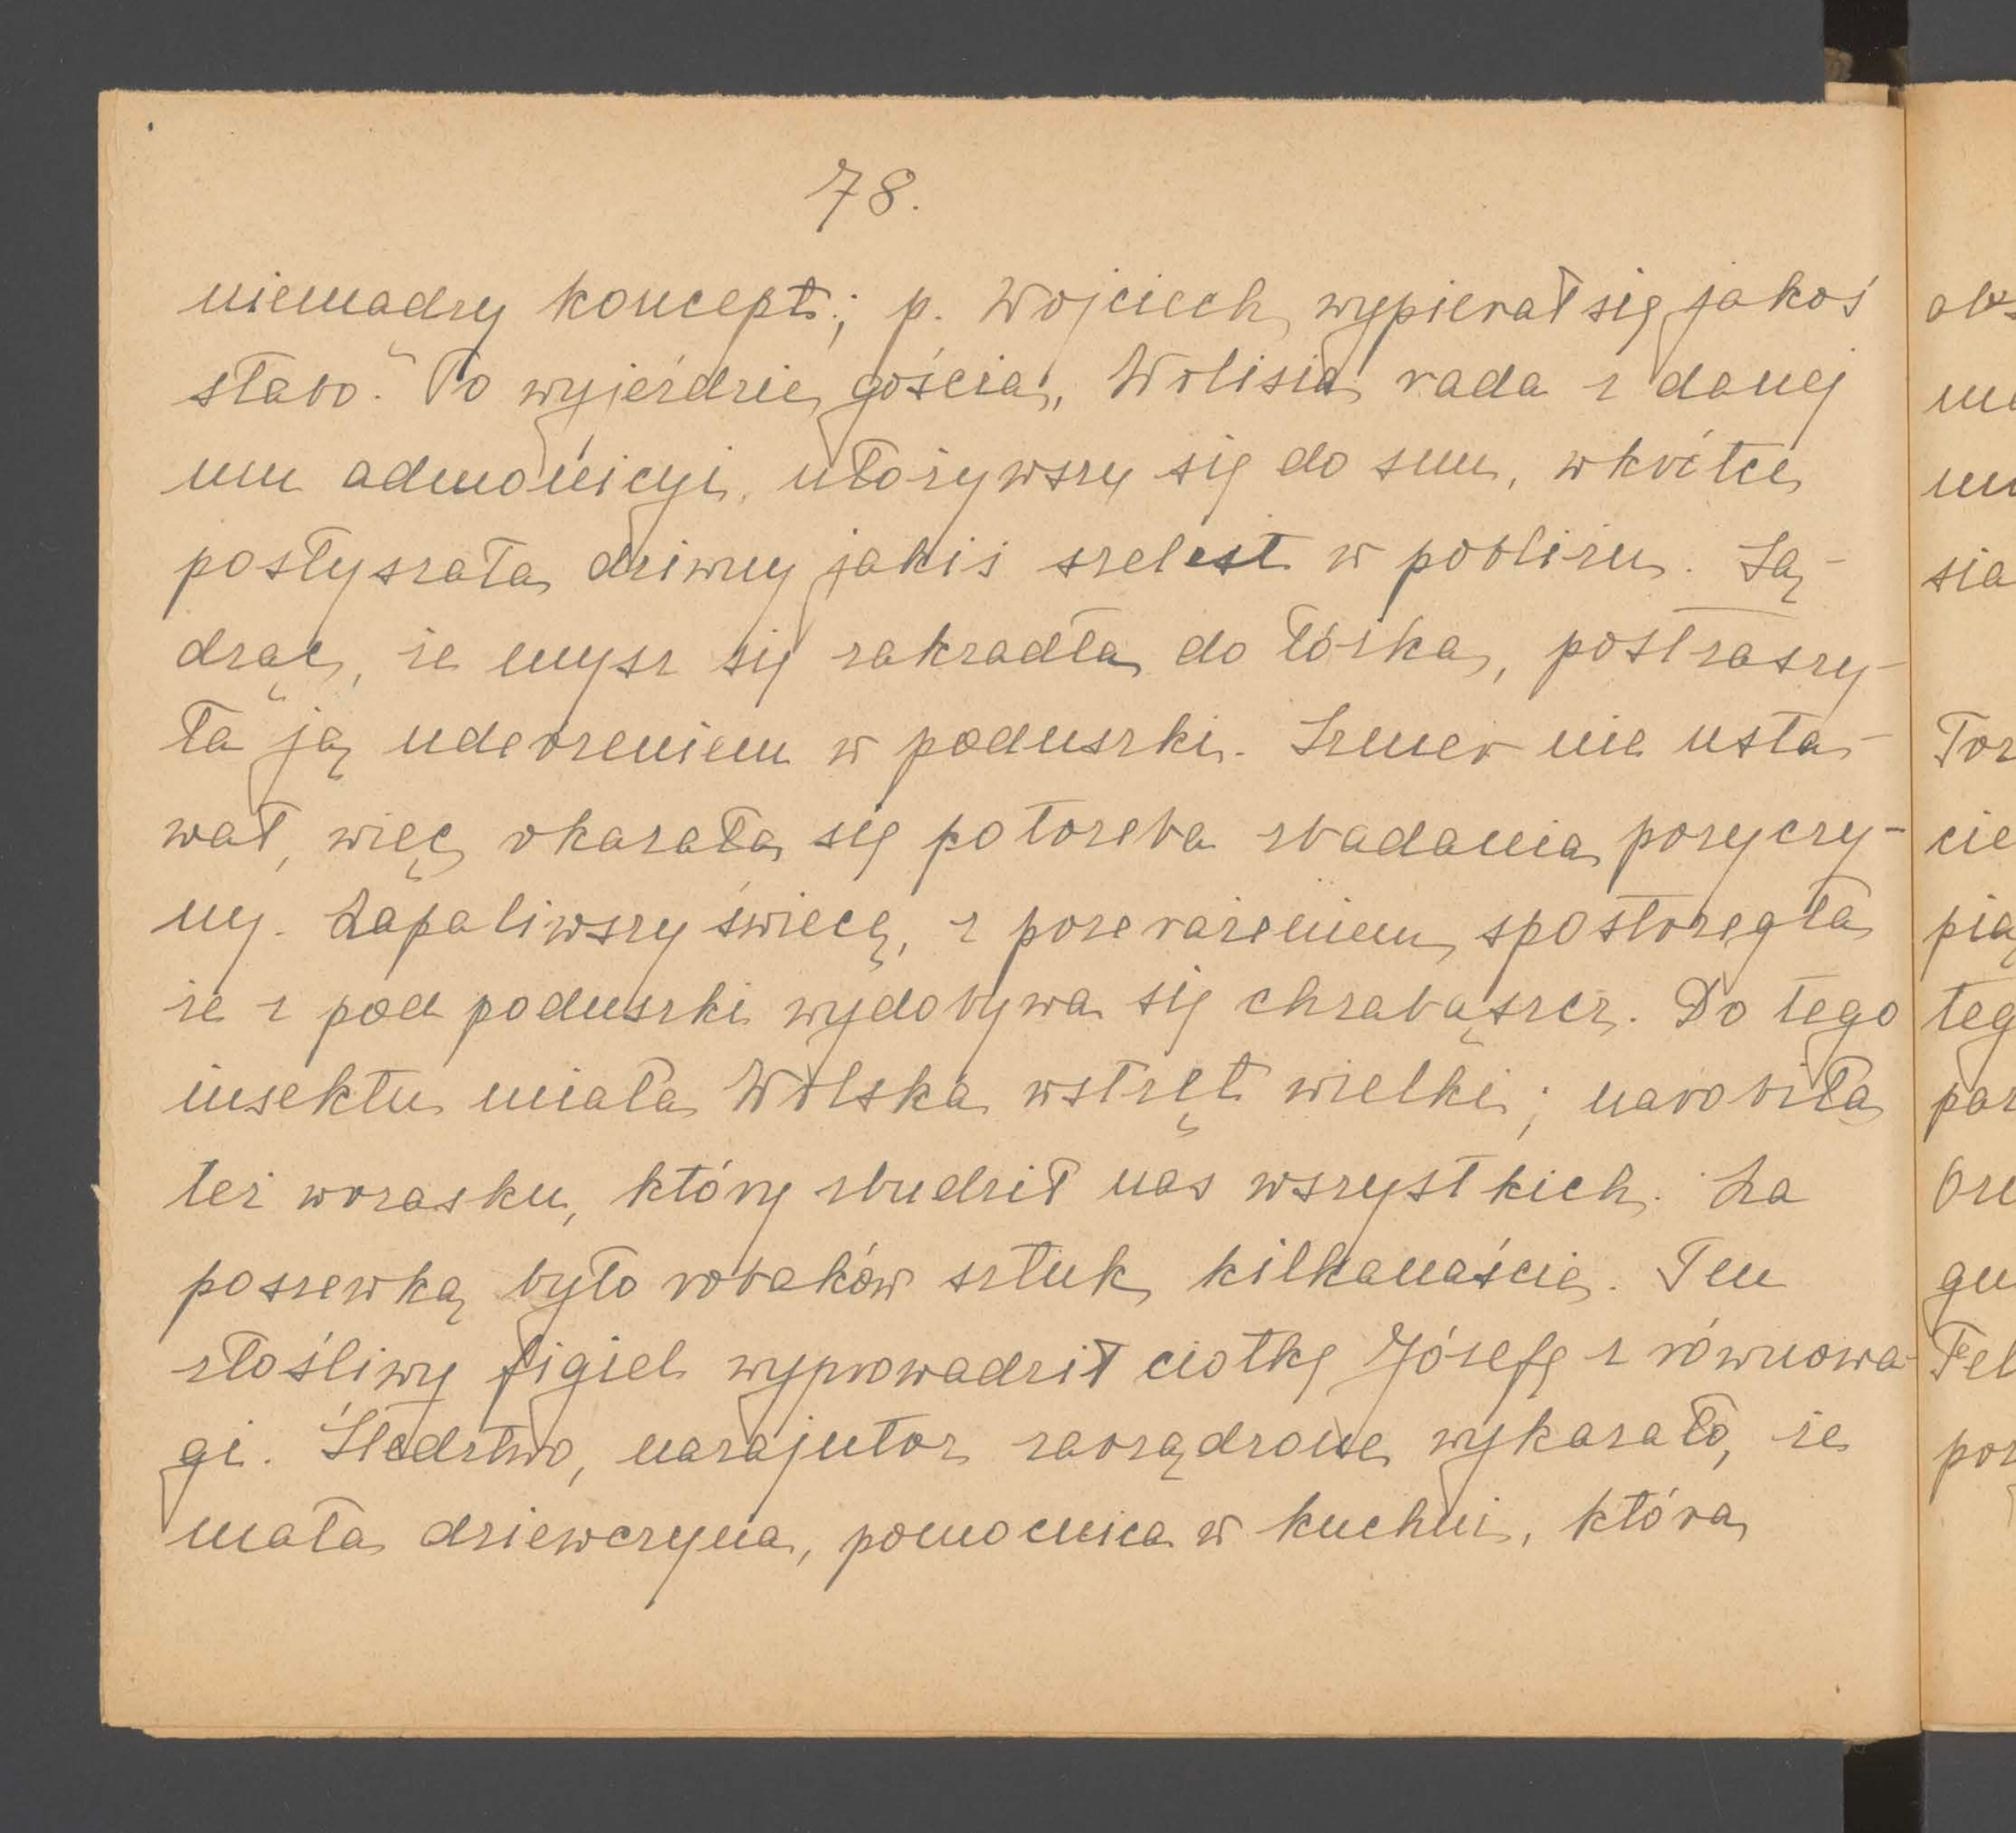 78.
niemądry koncept; p. Wojciech wypierał się jakoś
słabo. Po wyjeździe gościa, Wolisia rada z danej
mu admonicyi, ułożywszy się do snu, wkrótce
posłyszała dziwny jakiś szelest w pobliżu. Są-
dząc, że mysz się zakradła do łóżka, postraszy-
ła ją uderzeniem w poduszki. Szmer nie usta-
wał, więc okazała się potrzeba zbadania przyczy-
ny. Zapaliwszy świecę, z przerażeniem spostrzegła
że z pod poduszki wydobywa się chrabąszcz. Do tego
insektu miała Wolska wstręt wielki; narobiła
też wrzasku, który zbudził nas wszystkich. Za
poszewką było robaków sztuk kilkanaście. Ten
złośliwy figiel wyprowadził ciotkę Józefę z równowa-
gi. Śledztwo, nazajutrz zarządzone wykazało, że
mała dziewczyna, pomocnica w kuchni, która